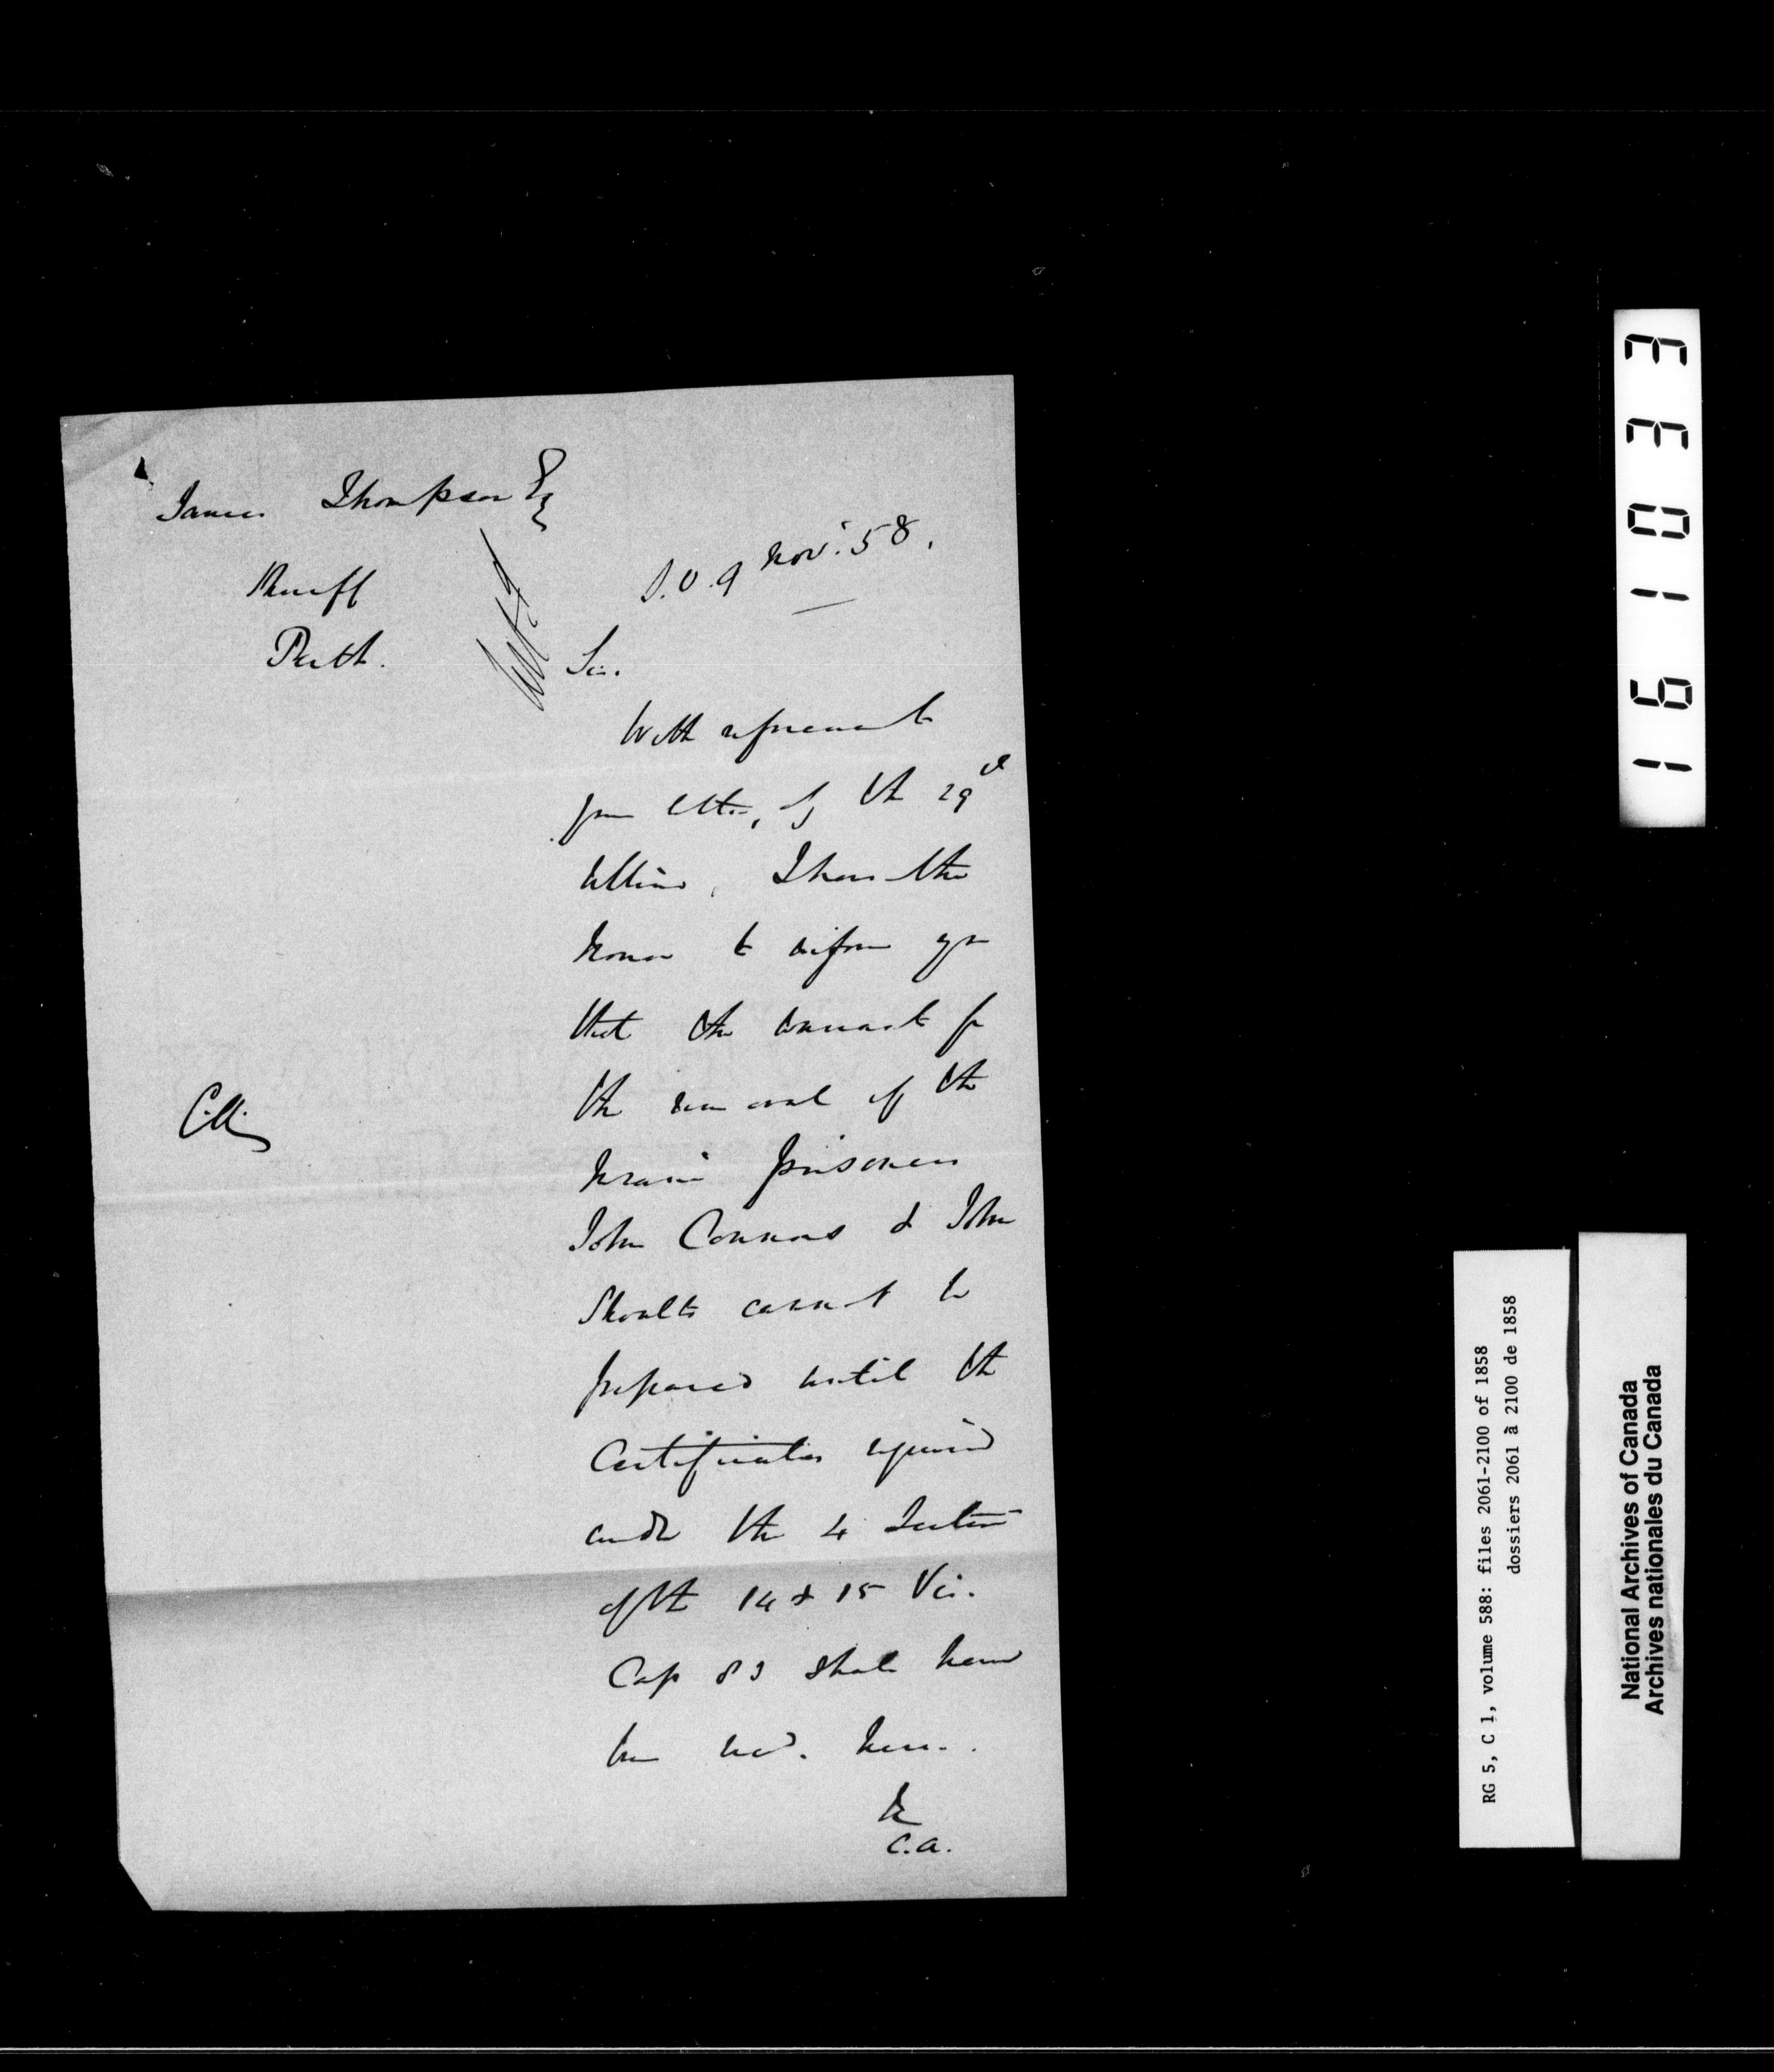 James Thompson Esq
Sheriff
Perth.
S.O. 9 Nov. 58.
Sir.
With reference to
your letter, of the 29th
Ultimo, I have the
honor to inform you
that the warrant for
the removal of the
insane prisoners
John Connors & John
Shoults cannot be
prepared until the
Certificates required
under the 4 Section
of the 14 & 15 Vic.
Cap 83 shall have
been recd. here.
&c
C.A.
161033
RG 5, C 1, volume 588: files 2061-2100 of 1858
dossiers 2061 à 2100 de 1858
National Archives of Canada
Archives nationales du Canada